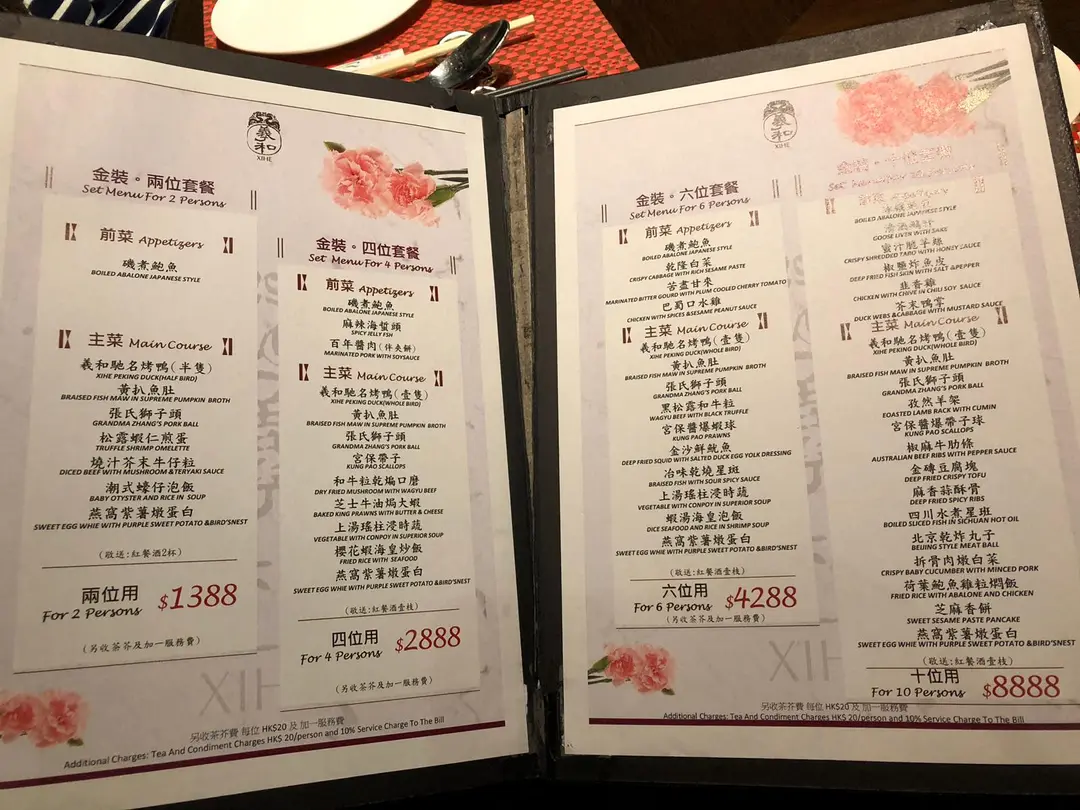 義和
XIHE
金裝。兩位套餐
Set Menu For 2 Persons
前菜 Appetizers
磯煮鮑魚
BOILED ABALONE JAPANESE STYLE
主菜 Main Course
義和馳名烤鴨(半隻)
XIHE PEKING DUCK(HALF BIRD)
黃扒魚肚
BRAISED FISH MAW IN SUPREME PUMPKIN BROTH
張氏獅子頭
GRANDMA ZHANG'S PORK BALL
松露蝦仁煎蛋
TRUFFLE SHRIMP OMELETTE
燒汁芥末牛仔粒
DICED BEEF WITH MUSHROOM &TERYAKI SAUCE
潮式蠔仔泡飯
BABY OTYSTER AND RICE IN SOUP
燕窩紫薯燉蛋白
SWEET EGG WHIE WITH PURPLE SWEET POTATO &BIRD'SNEST
(敬送:紅餐酒2杯)
兩位用
For 2 Persons
$1388
(另收茶芥及加一服務費)
金裝。四位套餐
Set Menu For 4 Persons
前菜 Appetizers
磯煮鮑魚
BOILED ABALONE JAPANESE STYLE
麻辣海蜇頭
SPICY JELLY FSH
百年醬肉(伴夾餅)
MARINATED PORK WITH SOYSAUCE
主菜 Main Course
義和馳名烤鴨(壹隻)
XIHE PEKING DUCK(WHOLE BIRD)
黃扒魚肚
BRAISED FISH MAW IN SUPREME PUMPKIN BROTH
張氏獅子頭
GRANDMA ZHANG'S PORK BALL
宮保帶子
KUNG PAO SCALLOPS
和牛粒乾煸口磨
DRY FRIED MUSHROOM WITH WAGYU BEEF
芝士牛油焗大蝦
BAKED KING PRAWNS WITH BUTTER & CHEESE
上湯瑤柱浸時蔬
VEGETABLE WITH CONPOY IN SUPERIOR SOUP
櫻花蝦海皇炒飯
FRIED RICE WITH SEAFOOD
燕窩紫薯燉蛋白
SWEET EGG WHIE WITH PURPLE SWEET POTATO &BIRD'SNEST
(敬送:紅餐酒壹枝)
四位用
For 4 Persons
$2888
(另收茶芥及加一服務費)
另收茶芥費 每位 HK$20 及 加一服務費
Additional Charges: Tea And Condiment Charges HK$ 20/person and 10% Service Charge To The Bill
義和
XIHE
金裝。六位套餐
Set Menu For 6 Persons
前菜 Appetizers
磯煮鮑魚
BOILED ABALONE JAPANESE STYLE
乾隆白菜
CRISPY CABBAGE WITH RICH SESAME PASTE
苦盡甘來
MARINATED BITTER GOURD WITH PLUM COOLED CHERRY TOMATO
巴蜀口水雞
CHICKEN WITH SPICES &SESAME PEANUT SAUCE
主菜 Main Course
義和馳名烤鴨(壹隻)
XIHE PEKING DUCK(WHOLE BIRD)
黃扒魚肚
BRAISED FISH MAW IN SUPREME PUMPKIN BROTH
張氏獅子頭
GRANDMA ZHANG'S PORK BALL
黑松露和牛粒
WAGYU BEEF WITH BLACK TRUFFLE
宮保醬爆蝦球
KUNG PAO PRAWNS
金沙鮮魷魚
DEEP FRIED SQUID WITH SALTED DUCK EGG YOLK DRESSING
冶味乾燒星斑
BRAISED FISH WITH SOUR SPICY SAUCE
上湯瑤柱浸時蔬
VEGETABLE WITH CONPOY IN SUPERIOR SOUP
蝦湯海皇泡飯
DICE SEAFOOD AND RICE IN SHRIMP SOUP
燕窩紫薯燉蛋白
SWEET EGG WHIE WITH PURPLE SWEET POTATO &BIRD'SNEST
(敬送:紅餐酒壹枝)
六位用
For 6 Persons
$4288
(另收茶芥及加一服務費)
前菜 Appetizers
BOILED ABALONE JAPANESE STYLE
GOOSE LIVER WITH SAKE
蜜汁脆芋絲
CRISPY SHREDDED TARO WITH HONEY SAUCE
椒鹽炸魚皮
DEEP FRIED FISH SKIN WITH SALT &PEPPER
韭香雞
CHICKEN WITH CHIVE IN CHILI SOY SAUCE
芥末鴨掌
DUCK WEBS &CABBAGE WITH MUSTARD SAUCE
主菜 Main Course
義和馳名烤鴨(壹隻)
XIHE PEKING DUCK(WHOLE BIRD)
黃扒魚肚
BRAISED FISH MAW IN SUPREME PUMPKIN BROTH
張氏獅子頭
GRANDMA ZHANG'S PORK BALL
孜然羊架
EOASTED LAMB RACK WITH CUMIN
宮保醬爆帶子球
KUNG PAO SCALLOPS
椒麻牛肋條
AUSTRALIAN BEEF RIBS WITH PEPPER SAUCE
金磚豆腐塊
DEEP FRIED CRISPY TOFU
麻香蒜酥骨
DEEP FRIED SPICY RIBS
四川水煮星斑
BOILED SLICED FISH IN SICHUAN HOT OIL
北京乾炸丸子
BEIJING STYLE MEAT BALL
拆骨肉燉白菜
CRISPY BABY CUCUMBER WITH MINCED PORK
荷葉鮑魚雞粒燜飯
FRIED RICE WITH ABALONE AND CHICKEN
芝麻香餅
SWEET SESAME PASTE PANCAKE
燕窩紫薯燉蛋白
SWEET EGG WHIE WITH PURPLE SWEET POTATO &BIRD'SNEST
(敬送:紅餐酒壹枝)
十位用
For 10 Persons
$8888
另收茶芥費 每位 HK$20 及 加一服務費
Additional Charges: Tea And Condiment Charges HK$ 20/person and 10% Service Charge To The Bill